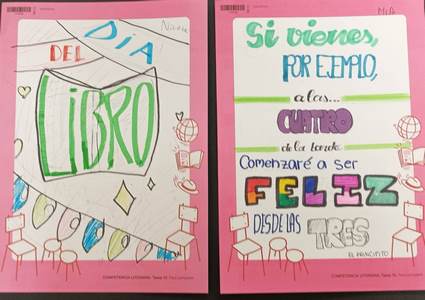 DÍA
DEL
LIBRO
COMPETENCIA LITERARIA
Si vienes,
POR EJEMPLO,
a las...
CUATRO
de la tarde
Comenzaré a ser
FELIZ
DESDE LAS
TRES
EL PRINCIPITO
COMPETENCIA LITERARIA